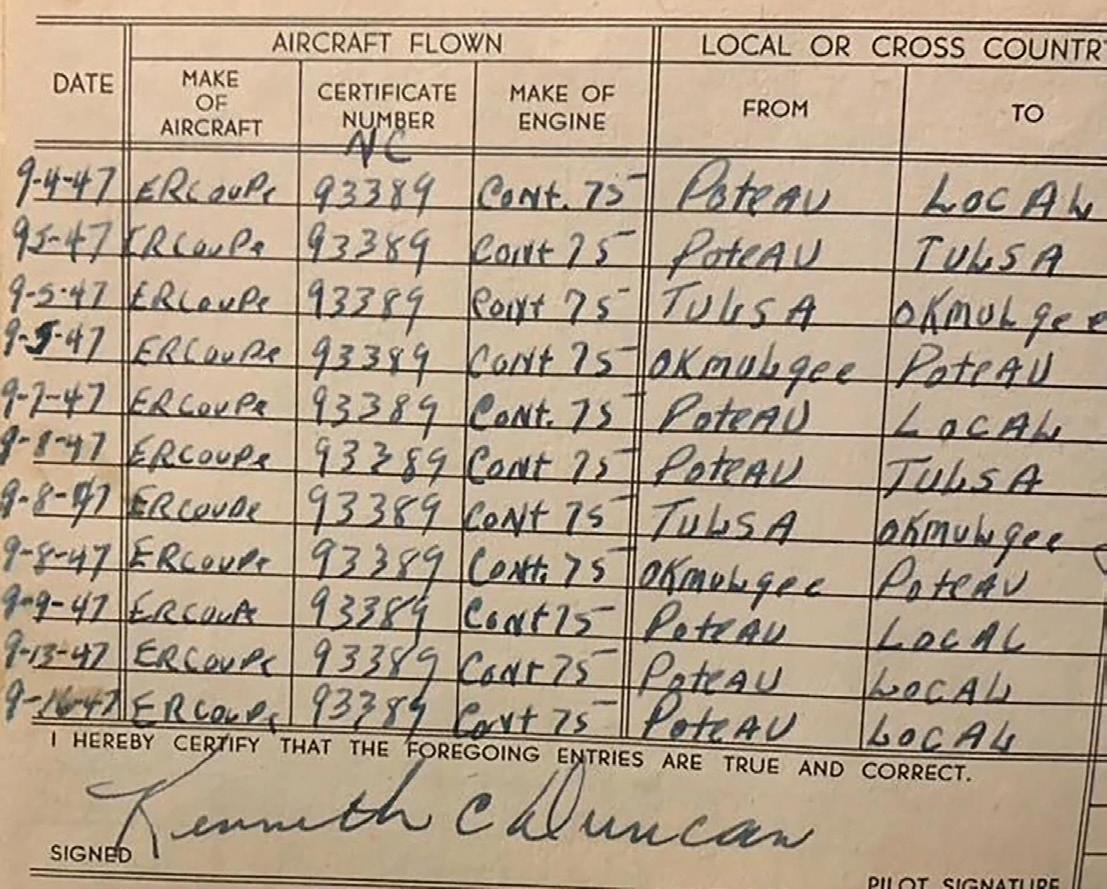 AIRCRAFT FLOWN LOCAL OR CROSS COUNTR
DATE MAKE OF AIRCRAFT CERTIFICATE NUMBER MAKE OF ENGINE FROM TO
NC
9-4-47 ERCouPe 93389 Cont. 75 PoteAU LOCAL
9-5-47 ERCouPe 93389 Cont 75 PoteAU TULSA
9-5-47 ERCouPe 93389 Cont 75 TULSA OKmuLgee
9-5-47 ERCouPe 93389 Cont 75 OKmuLgee PoteAU
9-7-47 ERCouPe 93389 Cont. 75 PoteAU LOCAL
9-8-47 ERCouPe 93389 Cont 75 PoteAU TULSA
9-8-47 ERCouPe 93389 Cont 75 TULSA OKmuLgee
9-8-47 ERCouPe 93389 Cont. 75 OKmuLgee PoteAU
9-9-47 ERCouPe 93389 Cont 75 PoteAU LOCAL
9-13-47 ERCouPe 93389 Cont 75 PoteAU LOCAL
9-16-47 ERCouPe 93389 Cont 75 PoteAU LOCAL
I HEREBY CERTIFY THAT THE FOREGOING ENTRIES ARE TRUE AND CORRECT.
Kenneth C Duncan
SIGNED
PILOT SIGNATURE